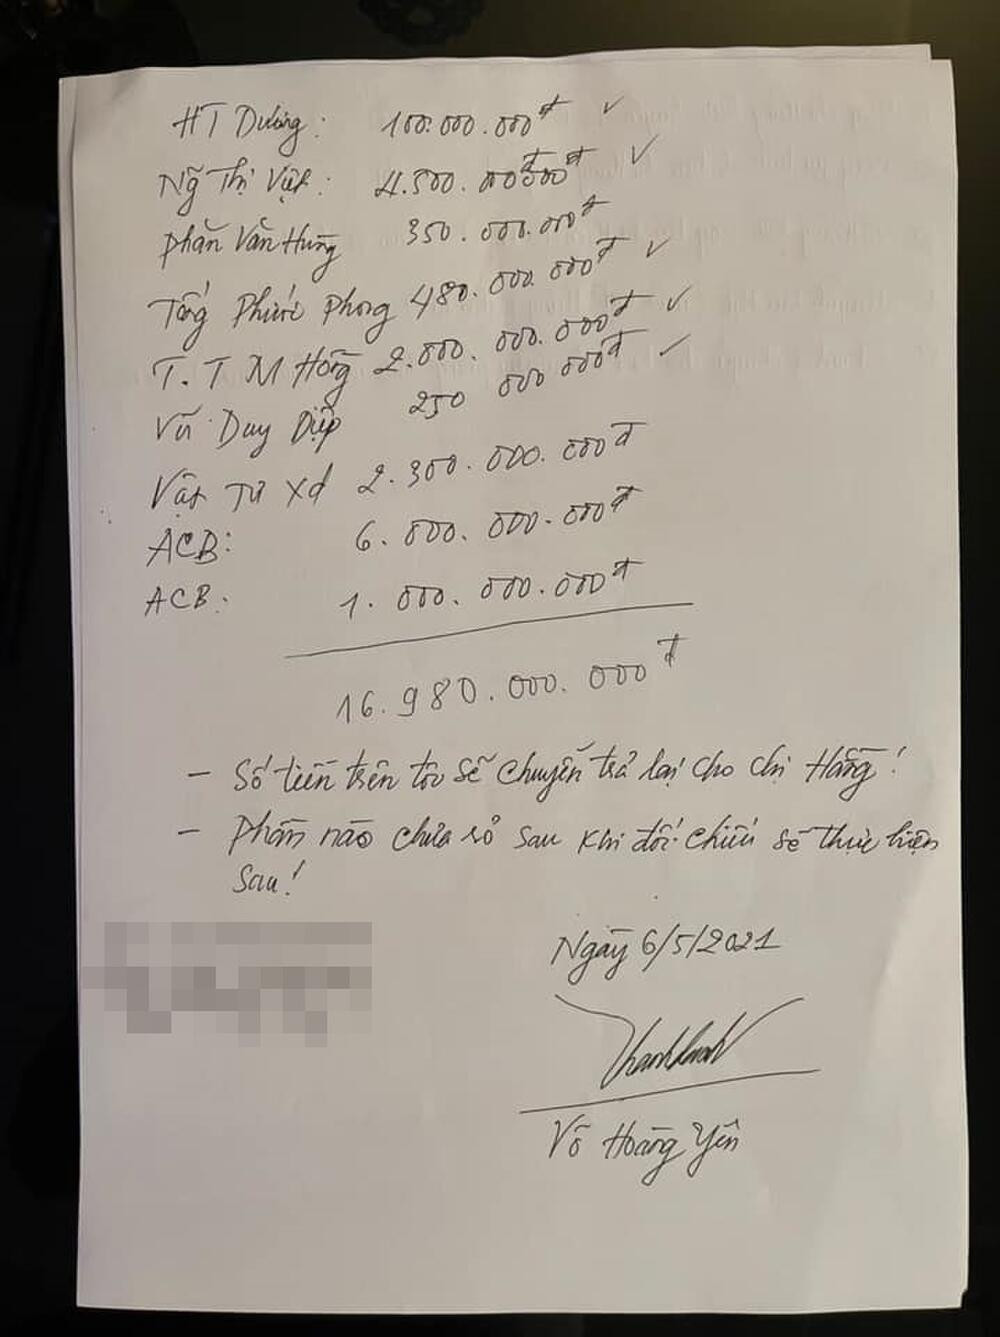 HT Dương: 100.000.000đ ✓
Ng Thị Việt: 4.500.000.000đ ✓
Phan Văn Hùng 350.000.000đ
Tống Phước Phong 480.000.000đ ✓
T.T M Hồng 2.000.000.000đ ✓
Vũ Duy Điệp 250 000 000đ ✓
Vật Tư Xd 2.300.000.000đ
ACB: 6.000.000.000đ
ACB. 1.000.000.000đ
16.980.000.000đ
- Số tiền trên tôi sẽ chuyển trả lại cho chị Hằng!
- Phần nào chưa rỏ sau khi đối chiếu sẽ thực hiện
sau!
Ngày 6/5/2021
Võ Hoàng Yên